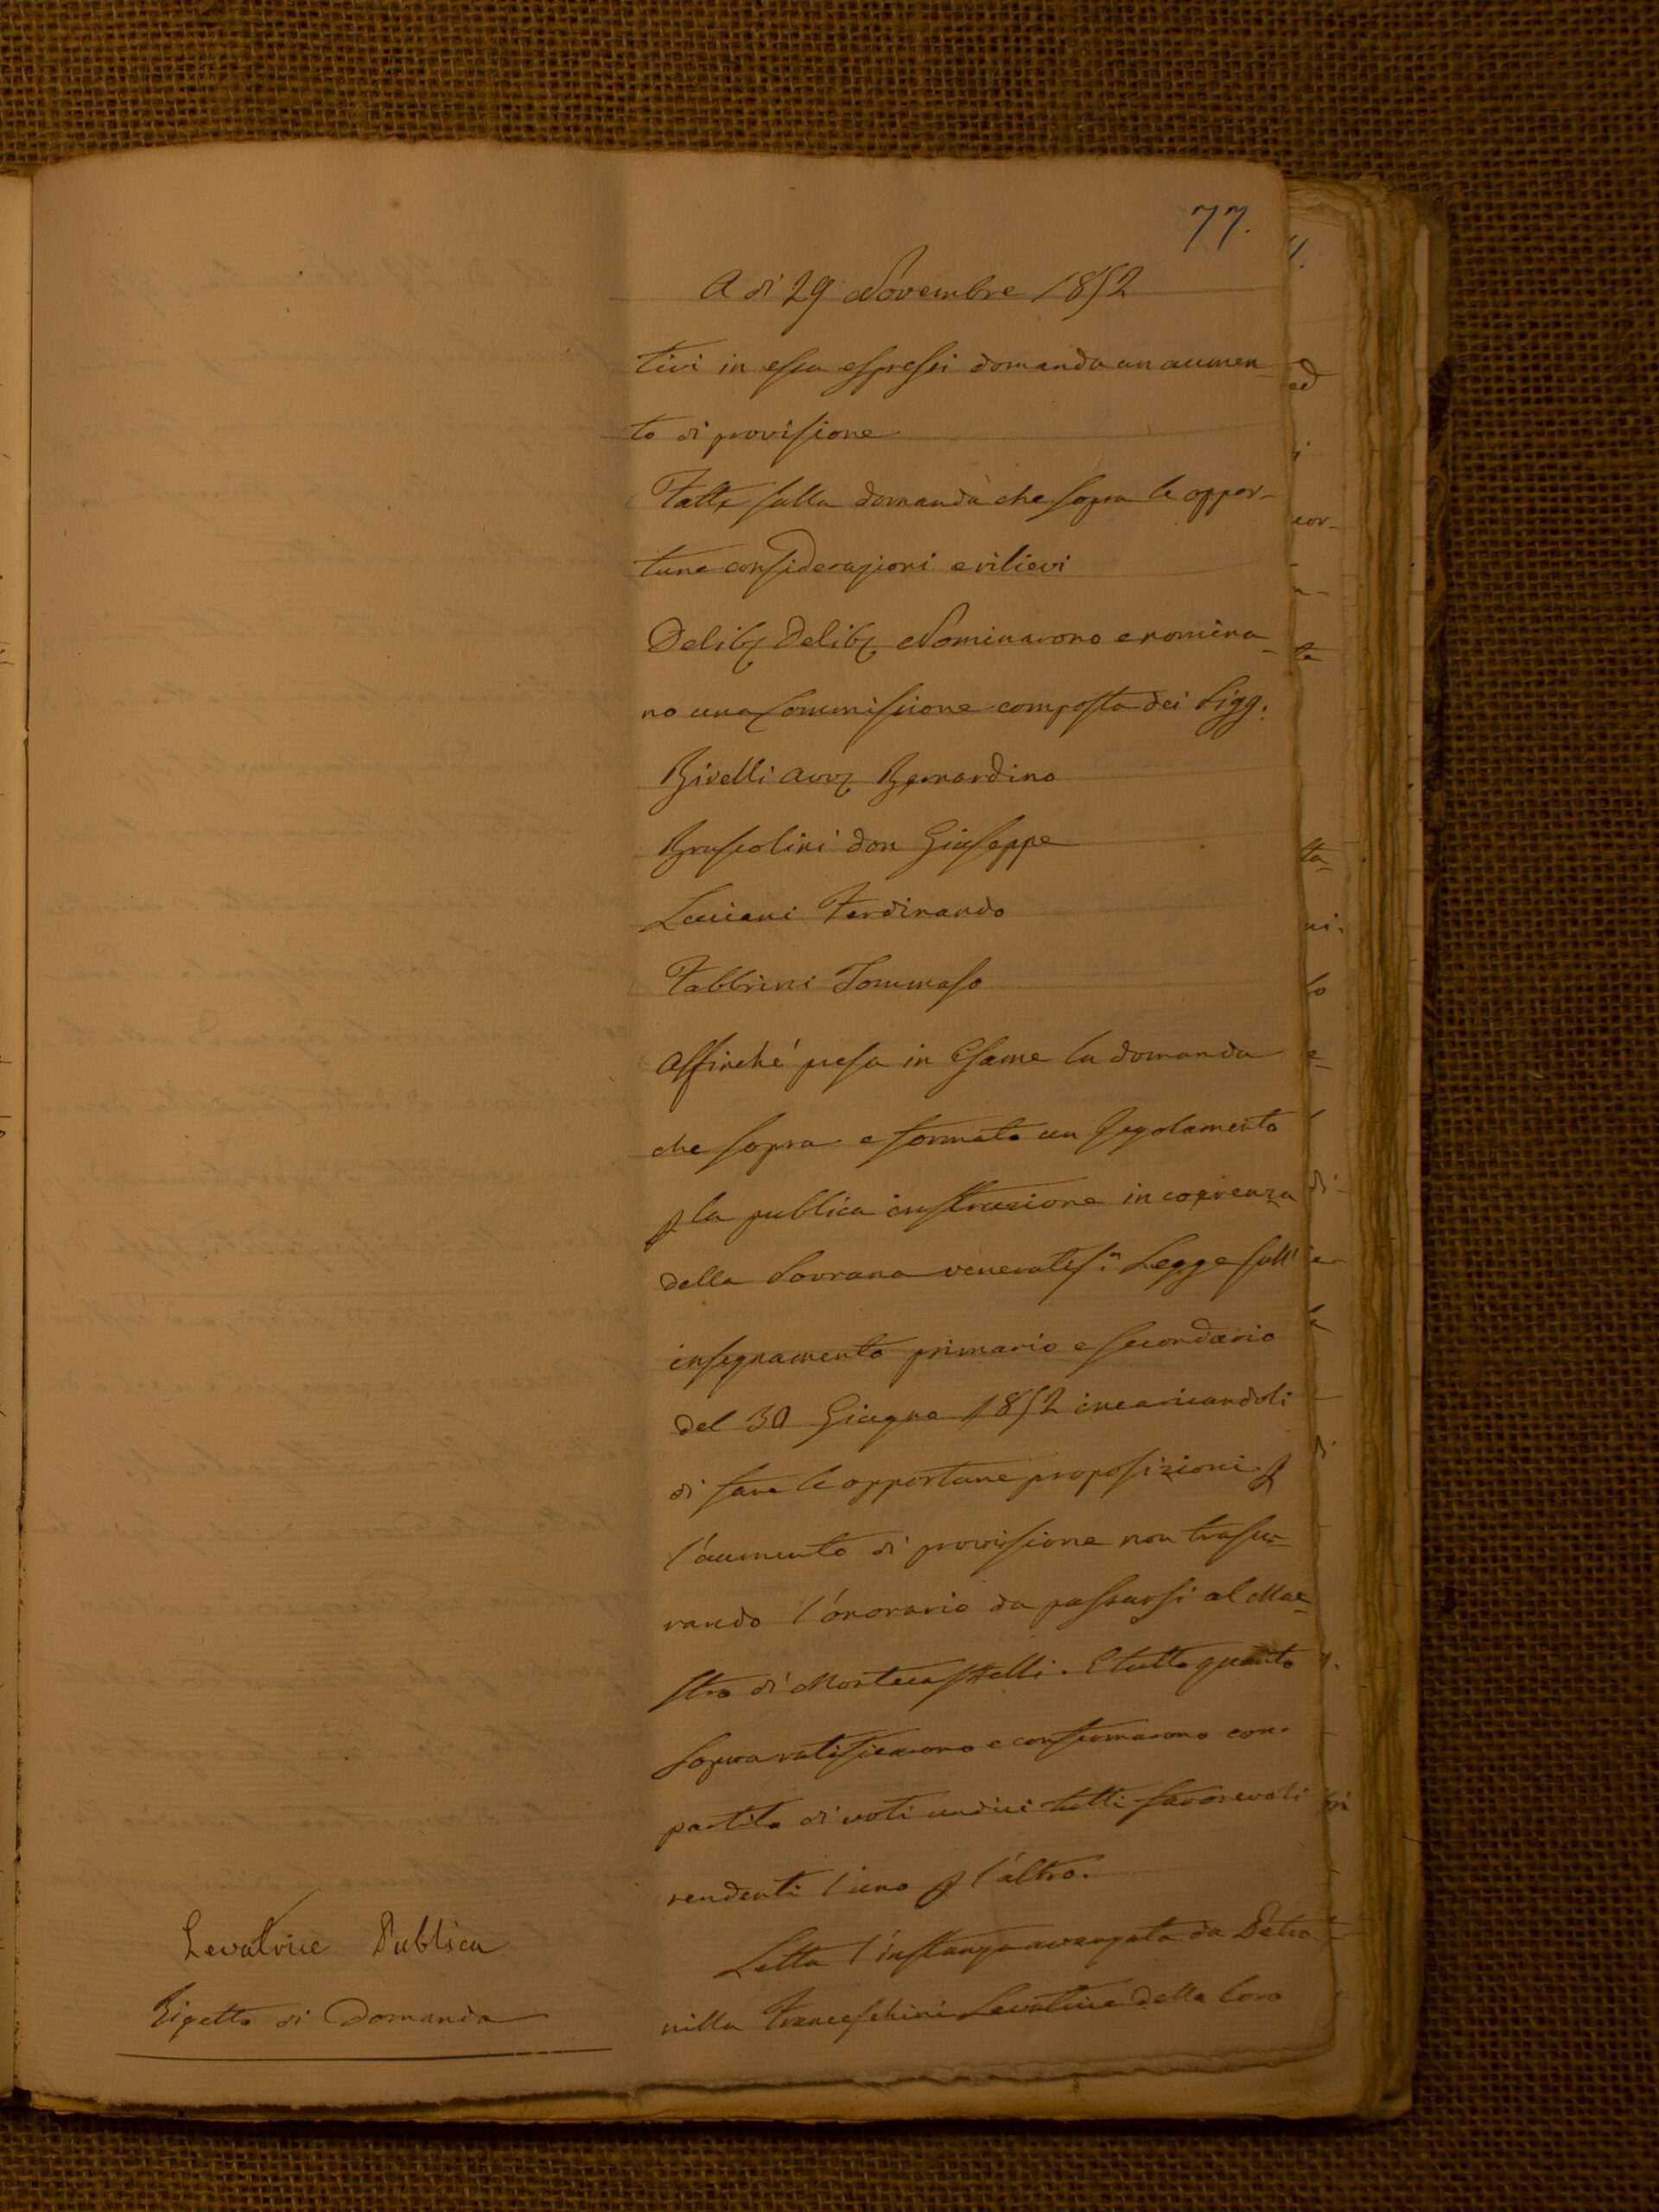 77.
A dì 29 Novembre 1852
tivi in essa espressi domanda un aumen-
to di provisione
Fatte sulla domanda che sopra le oppor-
tune considerazioni e rilievi
Delib: Delib: Nominarono e nomina-
no una Commissione composta dei Sigg.
Rivelli Avv: Bernardino
Bruscolini don Giuseppe
Luciani Ferdinando
Fabbrini Tommaso
Affinché presa in Esame la domanda
che sopra e formato un Regolamento
p la publica instruzione in coerenza
della Sovrana veneratiss:ª Legge sull'
insegnamento primario e secondario
del 30 Giugno 1852 incaricandoli
di fare le opportune proposizioni p
l'aumento di provvisione non trascu-
rando l'onorario da passarsi al Mae-
stro di Montecastelli. E tutto quanto
sopra ratificarono e confermarono con
partito di voti undici tutti favorevoli
rendenti l'uno p l'altro.
Letta l'instanza avanzata da Petro
nilla Franceschini Levatrice della loro
Levatrice Publica
Rigetto di Domanda